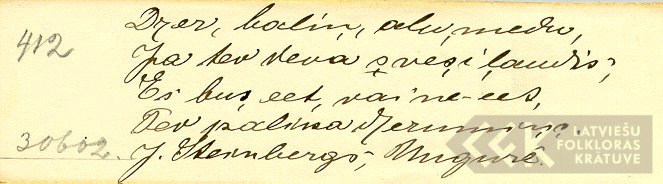 412
Dzer, baliņ, alu, medu,
Ja tev deva sveši ļaudis,
Es būš eet, vai ne-eet,
Tev palika dzerumiņš.
30602.
J. Steinbergs, Ungurē.
LATVIEŠU
FOLKLORAS
KRĀTUVE